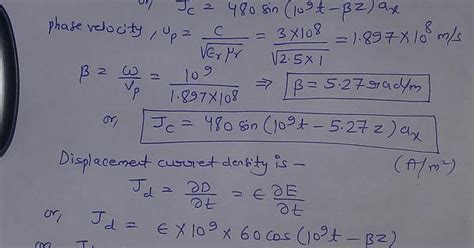 or, J_c = 480 sin (10^9t - βz) a_x
phase velocity, υ_p = c / √(ε_r μ_r) = 3×10^8 / √(2.5×1) = 1.897×10^8 m/s
β = ω / v_p = 10^9 / 1.897×10^8 ⇒ β = 5.27 rad/m
or, J_c = 480 sin (10^9t - 5.27 z) a_x
(A/m^2)
Displacement curret dentity is —
J_d = ∂D/∂t = ϵ ∂E/∂t
or, J_d = ϵ × 10^9 × 60 cos (10^9t - βz)